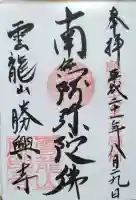 奉拝 平成二十一年八月二九日
南無阿弥陀佛
雲龍山勝興寺